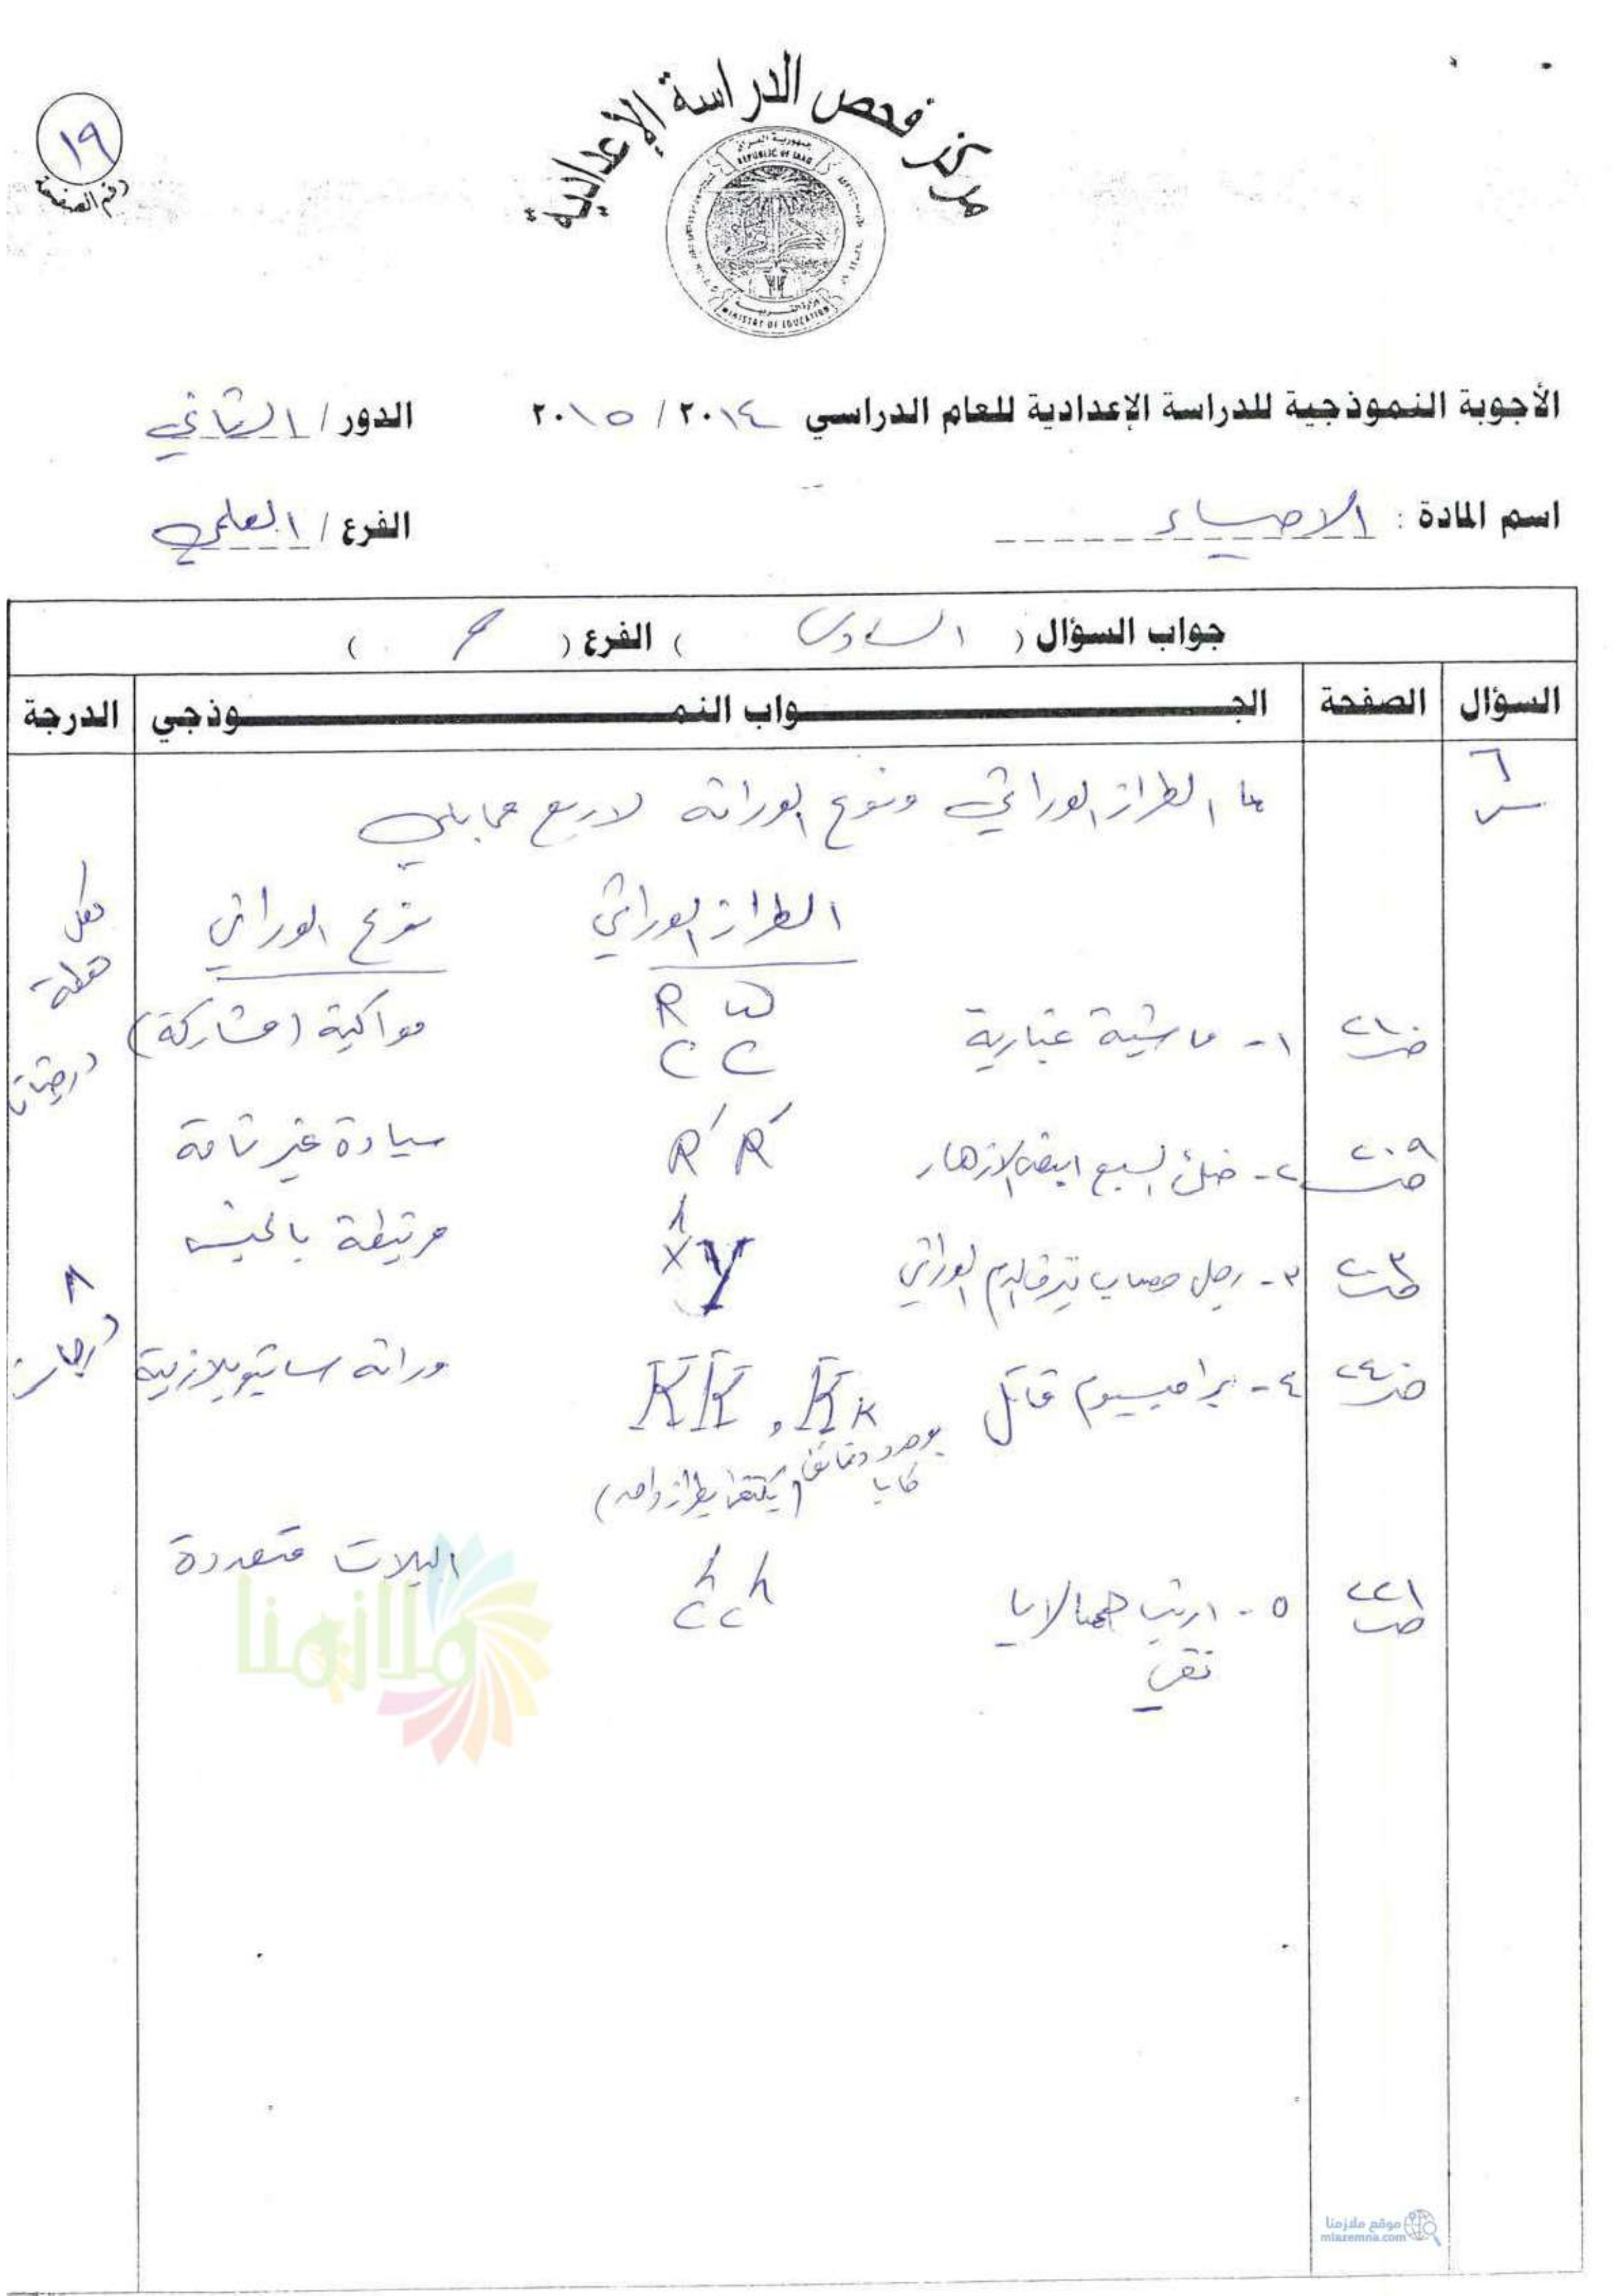 ١٩
رقم الصفحة
مركز فحص الدراسة الإعدادية
جمهورية العراق
REPUBLIC OF IRAQ
MINISTRY OF EDUCATION
الأجوبة النموذجية للدراسة الإعدادية للعام الدراسي ٢٠١٤ / ٢٠١٥ الدور / الثاني
اسم المادة : الاحياء الفرع / العلمي
جواب السؤال ( السادس ) الفرع ( )
السؤال الصفحة الجـواب النمـوذجي الدرجة
س٦ ما الطراز الوراثي ونوع الوراثة لاربع مما يلي
الطراز الوراثي نوع الوراثي لكل نقطة درجتان
ص٢١٠ ١- ماشية غبارية Cᴿ Cᵂ مواكبة (مشاركة)
ص٢٠٩ ٢- حنك السبع ابيض الازهار R′R′ سيادة غير تامة
ص٢٠٣ ٣- رجل مصاب بنزف الدم الوراثي XʰY مرتبطة بالجنس
٨ درجات
ص٢٤٠ ٤- براميسيوم قاتل KK , Kk وراثة سايتوبلازمية
بوجود دقائق كابا (يكتفى بطراز واحد)
ص٢٢١ ٥- ارنب همالايا نقي CʰCʰ اليلات متعددة
ملازمنا
موقع ملازمنا
mlazemna.com